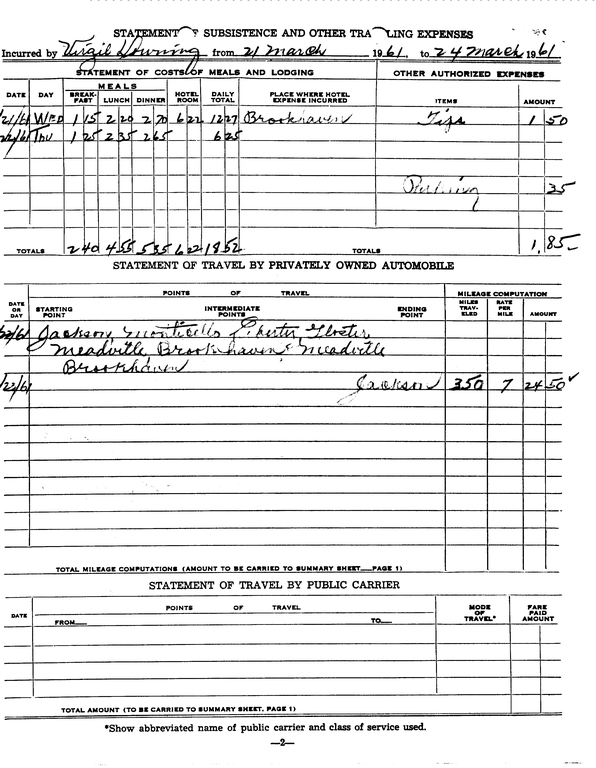 STATEMENT OF SUBSISTENCE AND OTHER TRA LING EXPENSES
Incurred by Virgil Downing from 21 March 1961, to 24 March 1961
STATEMENT OF COSTS OF MEALS AND LODGING OTHER AUTHORIZED EXPENSES
DATE DAY MEALS BREAK-FAST LUNCH DINNER HOTEL ROOM DAILY TOTAL PLACE WHERE HOTEL EXPENSE INCURRED ITEMS AMOUNT
21/61 WED 1 15 2 20 2 70 6 22 12 27 Brookhaven Tips 1 50
22/61 Thu 1 25 2 35 2 65 6 25
Parking 35
TOTALS 2 40 4 55 5 35 6 22 18 52 TOTALS 1,85
STATEMENT OF TRAVEL BY PRIVATELY OWNED AUTOMOBILE
DATE OR DAY POINTS OF TRAVEL MILEAGE COMPUTATION
STARTING POINT INTERMEDIATE POINTS ENDING POINT MILES TRAV-ELED RATE PER MILE AMOUNT
Jackson, Monticello, Liberty, Gloster,
Meadville, Brookhaven, Meadville
Brookhaven
22/61 Jackson 350 7 24 50 ✓
TOTAL MILEAGE COMPUTATIONS (AMOUNT TO BE CARRIED TO SUMMARY SHEET—PAGE 1)
STATEMENT OF TRAVEL BY PUBLIC CARRIER
DATE POINTS OF TRAVEL MODE OF TRAVEL* FARE PAID AMOUNT
FROM— TO—
TOTAL AMOUNT (TO BE CARRIED TO SUMMARY SHEET, PAGE 1)
*Show abbreviated name of public carrier and class of service used.
—2—